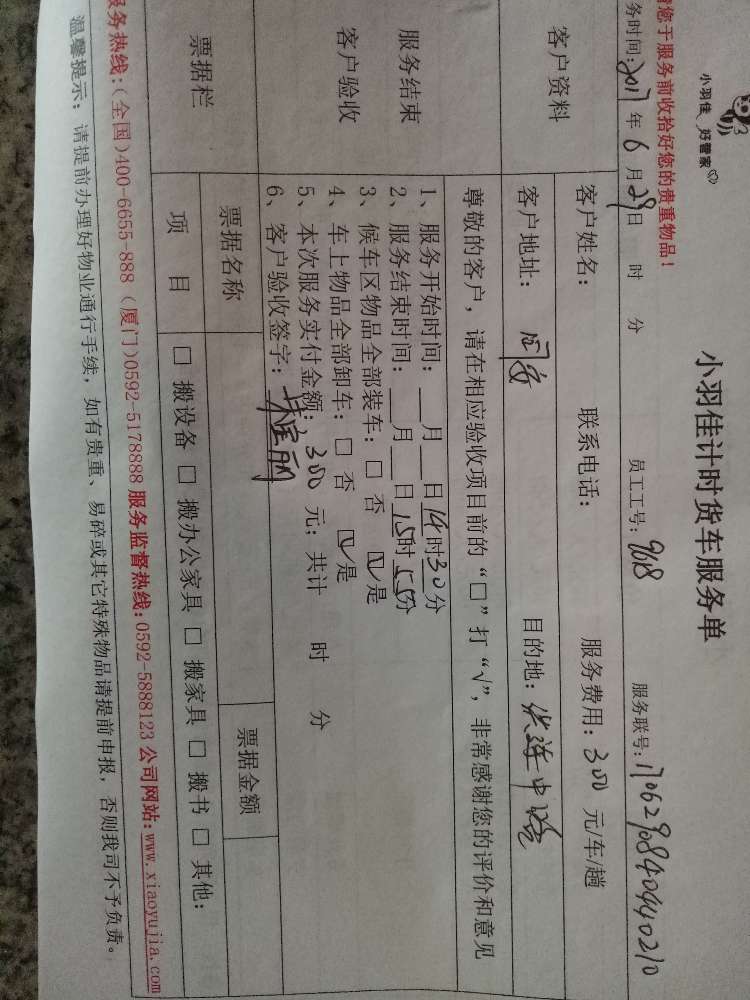 小羽佳 好管家
小羽佳计时货车服务单
您于服务前收拾好您的贵重物品!
务时间:2017年6月29日 时 分 员工工号:9018 服务联号:17062908409440210
客户资料
客户姓名: 联系电话: 服务费用:300元/车/趟
客户地址:同安 目的地:
服务结束
客户验收
尊敬的客户,请在相应验收项目前的“□”打“√”,非常感谢您的评价和意见
1、服务开始时间:__月__日14时30分
2、服务结束时间:__月__日15时55分
3、候车区物品全部装车:□ 否 ☑是
4、车上物品全部卸车:□ 否 ☑是
5、本次服务实付金额:300元;共计 时 分
6、客户验收签字:
票据栏
票据名称 票据金额
项 目 □ 搬设备 □ 搬办公家具 □ 搬家具 □ 搬书 □ 其他:
服务热线:(全国)400-6655-888 (厦门)0592-5178888 服务监督热线:0592-5888123 公司网站:www.xiaoyujia.com
温馨提示:请提前办理好物业通行手续,如有贵重、易碎或其它特殊物品请提前申报,否则我司不予负责。